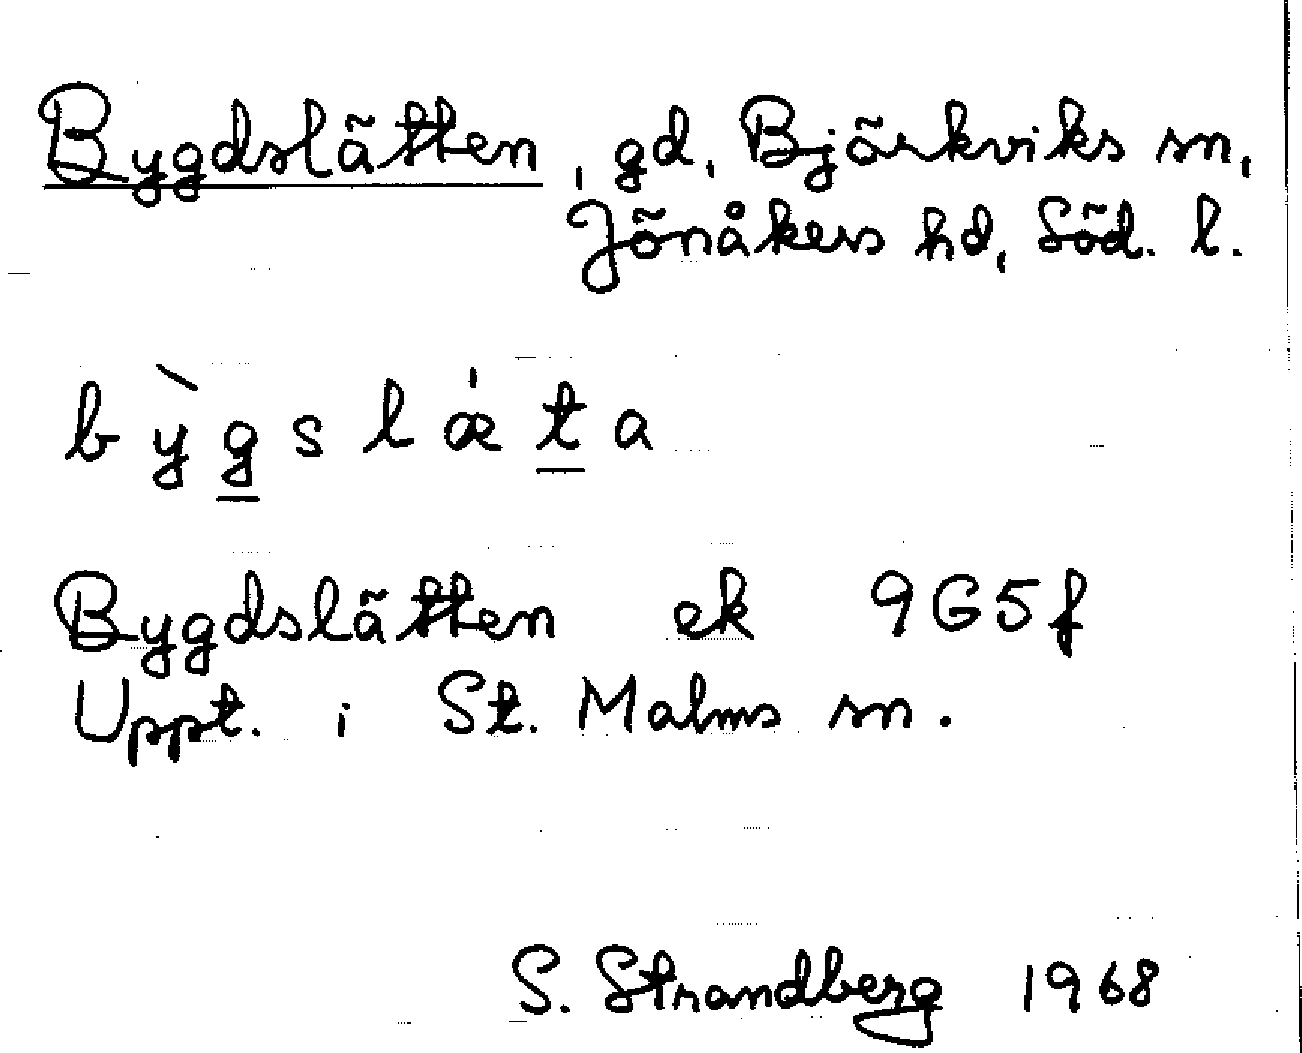 Bygdslätten, gd, Björkviks sn,
Jönåkers hd, Söd. l.
bỳgslæ̍ta
Bygdslätten ek 9G5f
Uppt. i St. Malms sn.
S. Strandberg 1968